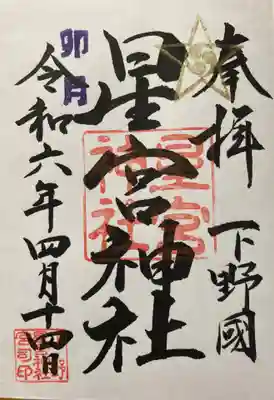 奉拝 下野國
星宮神社
星宮神社
卯月
令和六年四月十四日